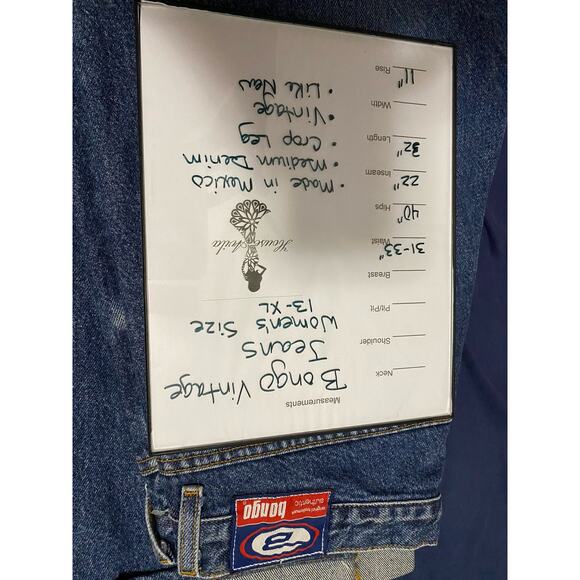 Measurements
Bongo Vintage
Jeans
Women's Size
13-XL
• Made in Mexico
• Medium Denim
• Crop Leg
• Vintage
• Like New
Neck
Shoulder
Pit/Pit
Breast
31-33" Waist
40" Hips
22" Inseam
32" Length
Width
11" Rise
B
bongo
authentic